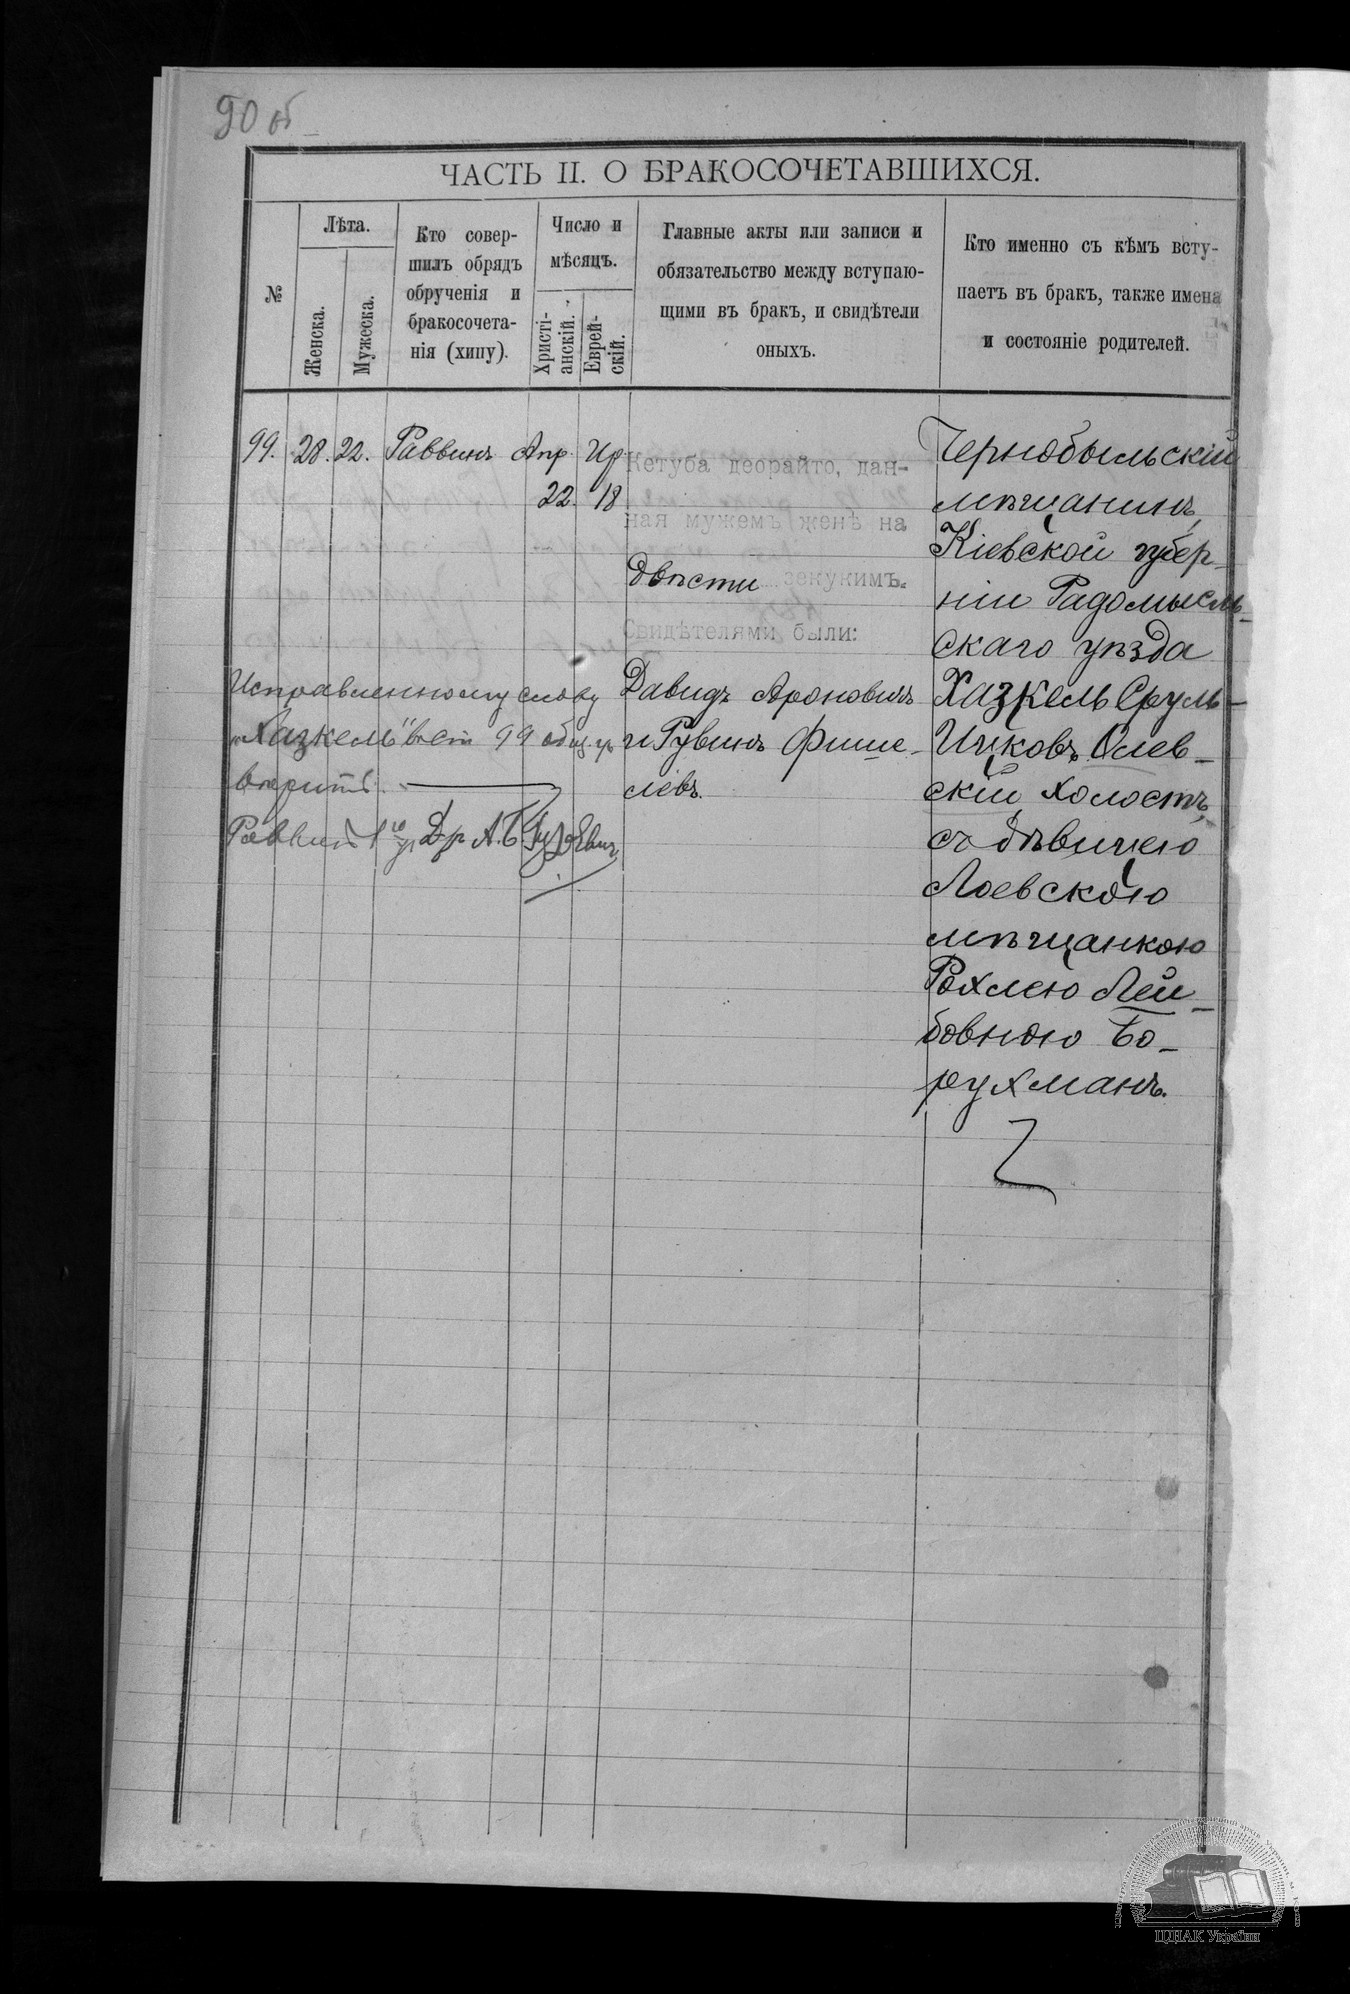 90 об
ЧАСТЬ II. О БРАКОСОЧЕТАВШИХСЯ.
№
Лѣта.
Женска.
Мужеска.
Кто совер-
шилъ обрядъ
обрученія и
бракосочета-
нія (хипу).
Число и
мѣсяцъ.
Христі-
анскій.
Еврей-
скій.
Главные акты или записи и
обязательство между вступаю-
щими въ бракъ, и свидѣтели
оныхъ.
Кто именно съ кѣмъ всту-
паетъ въ бракъ, также имена
и состояніе родителей.
99. 28. 22. Раввинъ Апр. Ир
22 18
Кетуба деорайто, дан-
ная мужемъ женѣ на
двѣсти зекукимъ.
Свидѣтелями были:
Давидъ Ароновичъ
и Рувинъ Фише-
левъ.
Чернобыльскій
мѣщанинъ,
Кіевской губер-
ніи Радомысль-
скаго уѣзда
Хазкель Сруль-
Ицковъ Олев-
скій, холостъ,
съ дѣвицею
Лоевскою
мѣщанкою
Рохлею Лей-
бовною Бо-
рухманъ.
Исправленному слову
„Хазкель" въ ст 99
вѣрить.
Раввинъ Д-р А. Б.
ЦДІАК України